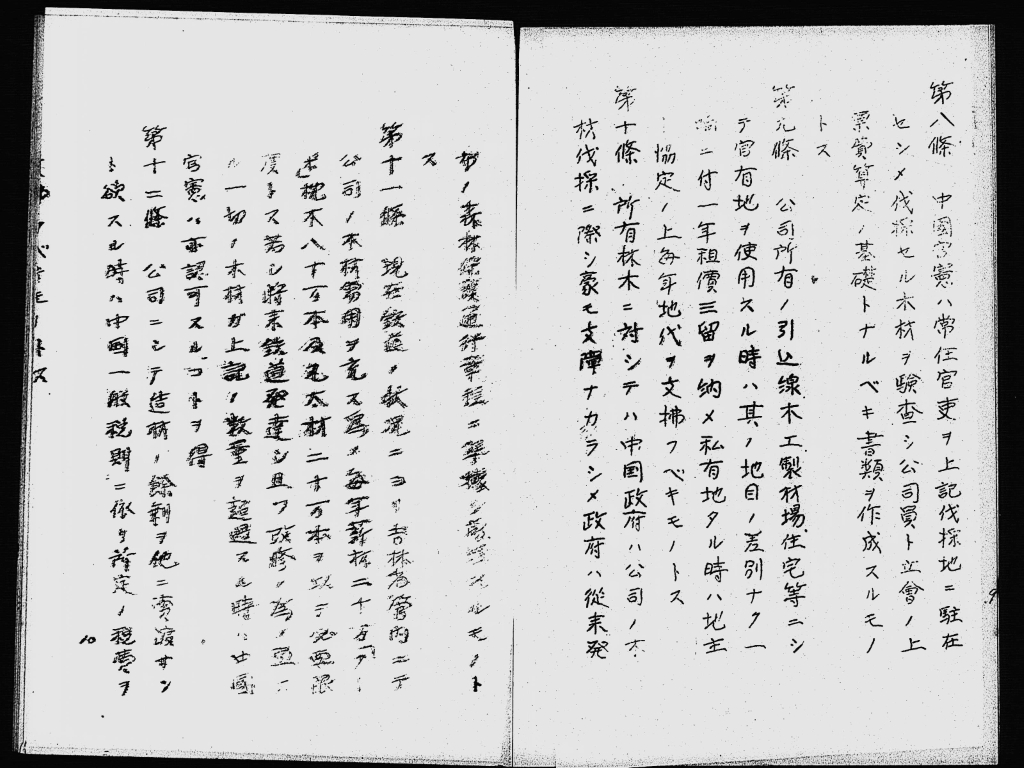 第八條　中國官憲ハ常任官吏ヲ上記伐採地ニ駐在
セシメ伐採セル木材ヲ験査シ公司員ト立會ノ上
票費算定ノ基礎トナルベキ書類ヲ作成スルモノ
トス
第九條　公司所有ノ引込線木工製材場住宅等ニシ
テ官有地ヲ使用スル時ハ其ノ地目ノ差別ナク一
ニ付一年租價三留ヲ納メ私有地タル時ハ地主
協定ノ上毎年地代ヲ支拂フベキモノトス
第十條　所有林木ニ対シテハ中国政府ハ公司ノ木
材伐採ニ際シ豪モ支障ナカラシメ政府ハ從来発
布ノ森林保護通行章程ニ準據シ スルモノト
ス
第十一條　現在鉄道ノ状况ニヨリ吉林省管内ニテ
公司ノ木材需用ヲ充ス為メ毎年薪材二十万
枕木八十万本及丸太材二十万本ヲ以テ必要限
度トス若シ將来鉄道発達シ且ツ改修ノ為メ
ル一切ノ木材ガ上記ノ数量ヲ超過スル時ハ中國
官憲ハ亦認可スルコトヲ得
第十二條　公司ニシテ造材ノ餘剰ヲ他ニ賣渡サン
ト欲スル時ハ中國一般税則ニ依リ所定ノ税費ヲ
フベキモノトス
9
10